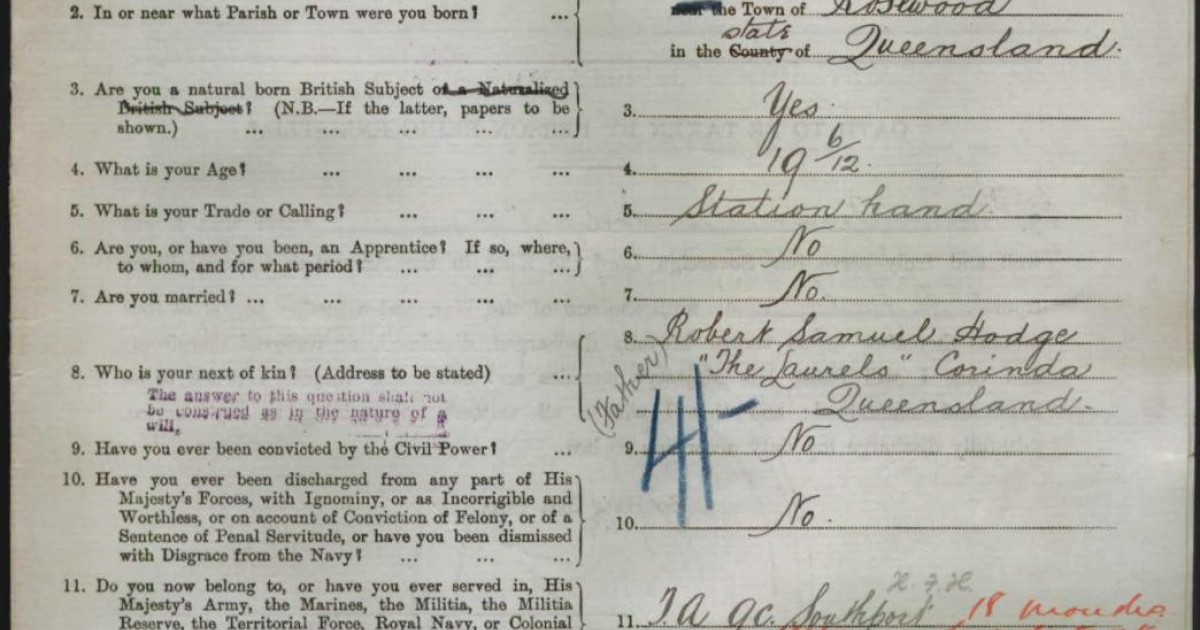 2. In or near what Parish or Town were you born? ... the Town of Rosewood
state
in the County of Queensland.
3. Are you a natural born British Subject or a Naturalized
British Subject? (N.B.—If the latter, papers to be
shown.) ... ... ... ... 3. Yes.
4. What is your Age? ... ... ... 4. 19 6/12.
5. What is your Trade or Calling? ... ... ... 5. Station hand.
6. Are you, or have you been, an Apprentice? If so, where,
to whom, and for what period? ... ... ... 6. No
7. Are you married? ... ... ... ... ... 7. No.
8. Who is your next of kin? (Address to be stated) ... 8. Robert Samuel Hodge
(Father) "The Laurels" Corinda
Queensland.
The answer to this question shall not
be construed as in the nature of a
will.
9. Have you ever been convicted by the Civil Power? ... 9. No
10. Have you ever been discharged from any part of His
Majesty's Forces, with Ignominy, or as Incorrigible and
Worthless, or on account of Conviction of Felony, or of a
Sentence of Penal Servitude, or have you been dismissed
with Disgrace from the Navy? ... ... ... 10. No.
11. Do you now belong to, or have you ever served in, His
Majesty's Army, the Marines, the Militia, the Militia
Reserve, the Territorial Force, Royal Navy, or Colonial
11. Southport 18 months